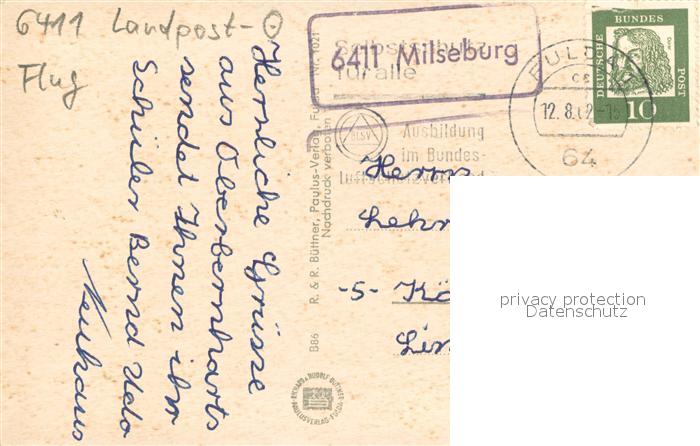 6411 Landpost-O
Flug
Herrliche Grüsse
aus Oberbernhards
sendet Ihnen ihr
Schüler Bernd Udo
Neuhaus
B86 R. & R. Büttner, Paulus-Verlag, Fulda Nr. 1021
Nachdruck verboten
Selbstschutz
für alle
6411 Milseburg
BLSV
Ausbildung
im Bundes-
FULDA
12. 8. 62-15
64
DEUTSCHE
BUNDES
POST
10
Herrn
Lehr
-5- Kö
Lin
privacy protection
Datenschutz